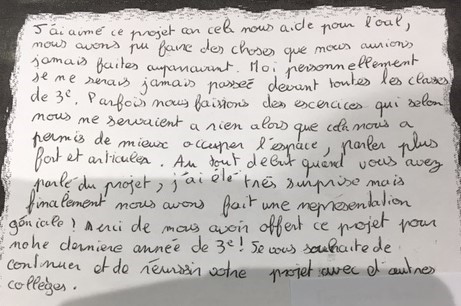 J'ai aimé ce projet car cela nous aide pour l'oral,
nous avons pu faire des choses que nous aurions
jamais faites auparavant. Moi personnellement
je me serais jamais passée devant toutes les classes
de 3e. Parfois nous faisions des excercices qui selon
nous me servaient a rien alors que cela nous a
permis de mieux occuper l'espace, parler plus
fort et articuler. Au tout début quand vous avez
parlé du projet, j'ai été très surprise mais
finalement nous avons fait une représentation
géniale ! Merci de nous avoir offert ce projet pour
notre dernière année de 3e ! Je vous souhaite de
continuer et de réussir votre projet avec d'autres
collèges.